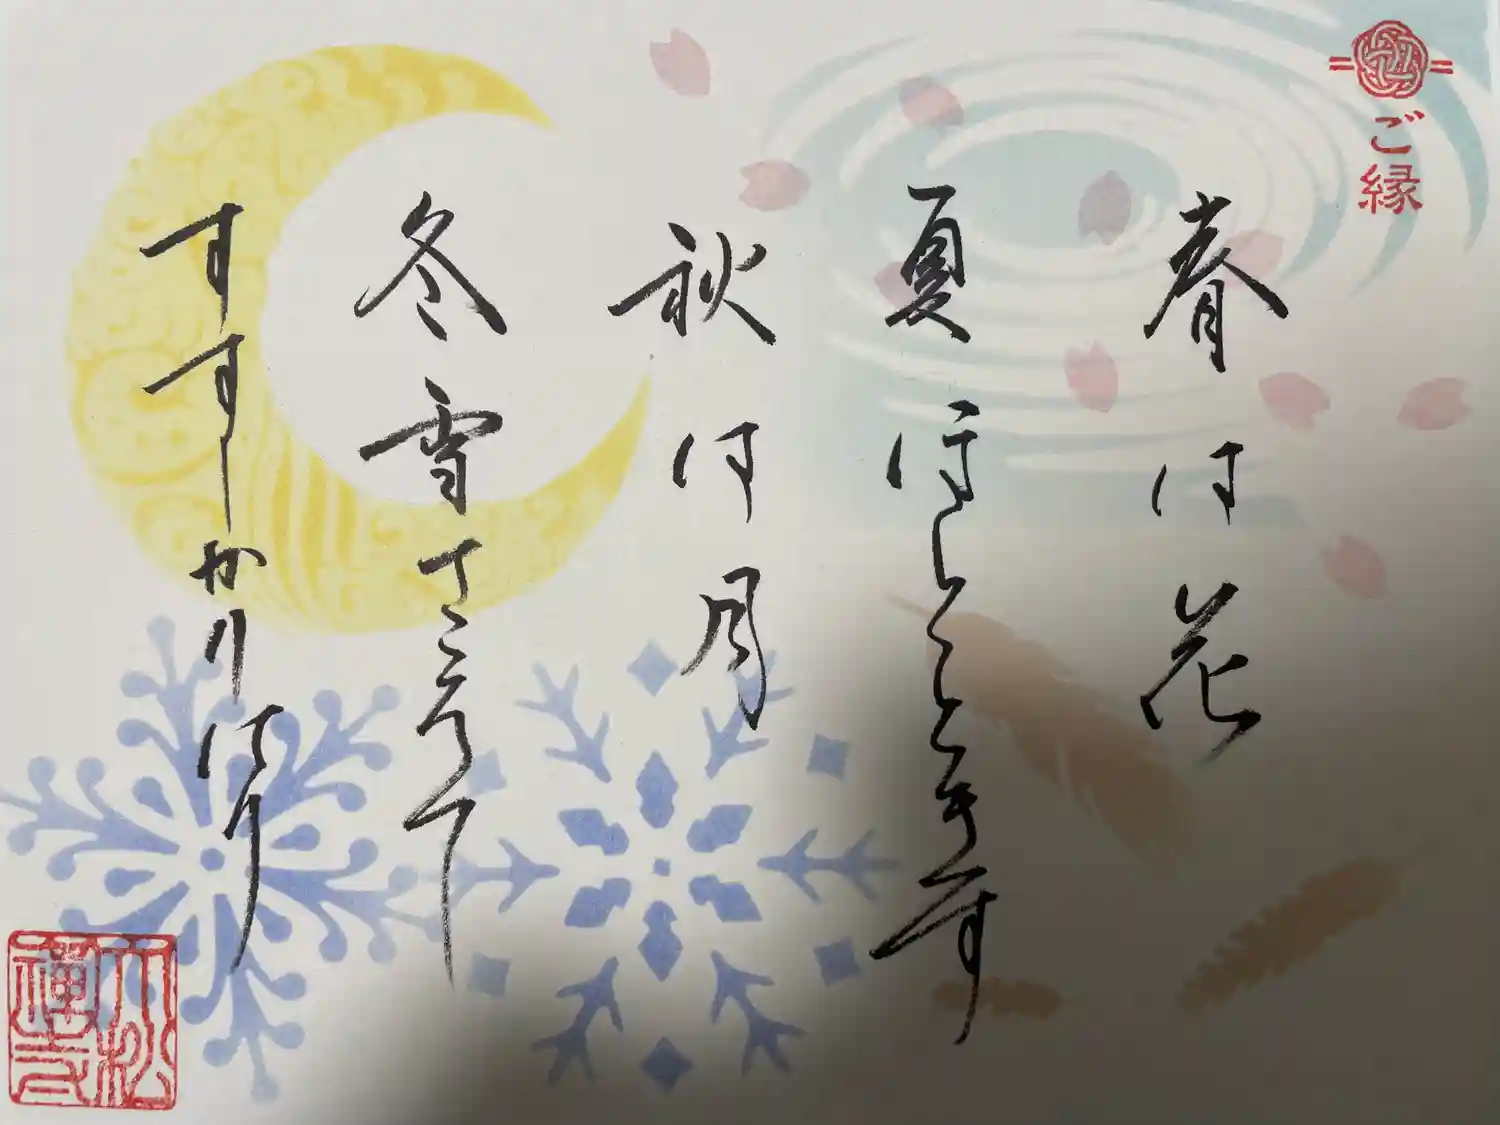 ご縁
春は花
夏ほとときす
秋は月
冬雪さえて
すすしかりけり
大松
禪寺